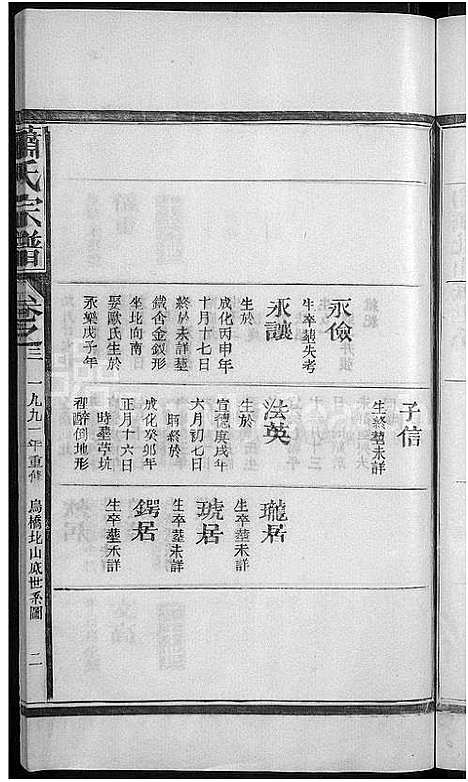 永儉
生卒塟失考
永讓
生於
成化丙申年
十月十七日
終於未詳塟
鐵杏金釵形
坐北向南
娶歐氏生於
永樂戊子年
子信
生終塟未詳
法英
生於
宣德庚戌年
六月初七日
時終於
成化癸卯年
正月十六日
時塟草坑
裡醉倒地形
瓏居
生卒塟未詳
琥居
生卒塟未詳
鍔居
生卒塟未詳
蕭氏宗譜
卷之三
一九九一年重修
烏橋北山底世系圖
二